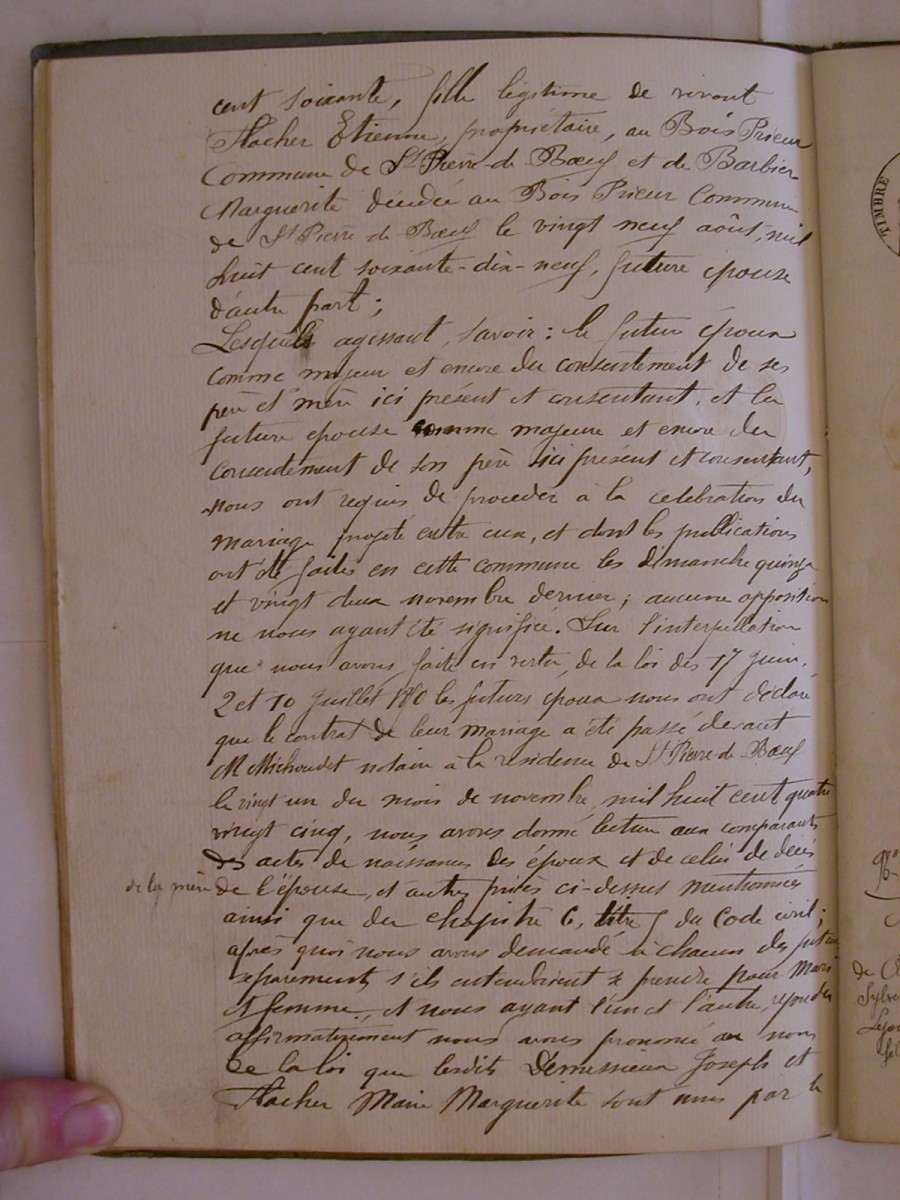 cent soixante, fille légitime de vivant
Flacher Etienne, propriétaire, au Bois Prieur
Commune de St Pierre de Bœuf et de Barbier
Marguerite décédée au Bois Prieur Commune
de St Pierre de Bœuf le vingt neuf août, mil
huit cent soixante-dix-neuf, future épouse
d'autre part;
Lesquels agissant, savoir: le futur époux
comme majeur et encore du consentement de ses
père et mère ici présent et consentant, et la
future épouse comme majeure et encore du
consentement de son père ici présent et consentant,
nous ont requis de procéder à la celebration du
mariage projeté entre eux, et dont les publications
ont été faites en cette commune les dimanche quinze
et vingt deux novembre dernier; aucune opposition
ne nous ayant été signifiée. Sur l'interpellation
que nous avons faite en vertu de la loi des 17 juin,
2 et 10 juillet 1850 les futurs époux nous ont déclaré
que le contrat de leur mariage a été passé devant
M Michoudet notaire à la résidence de St Pierre de Bœuf
le vingt un du mois de novembre, mil huit cent quatre
vingt cinq, nous avons donné lecture aux comparants
des actes de naissances des époux et de celui de décès
de la mère de l'épouse, et autres pièces ci-dessus mentionnées
ainsi que du chapitre 6, titre 5 du Code civil;
après quoi nous avons demandé à chacun des futurs
séparement s'ils entendaient se prendre pour Mari
et femme, et nous ayant l'un et l'autre, répondu
affirmativement nous avons prononcé au nom
de la loi que lesdits Dermssieux Joseph et
Flacher Marie Marguerite sont unis par le
TIMBRE